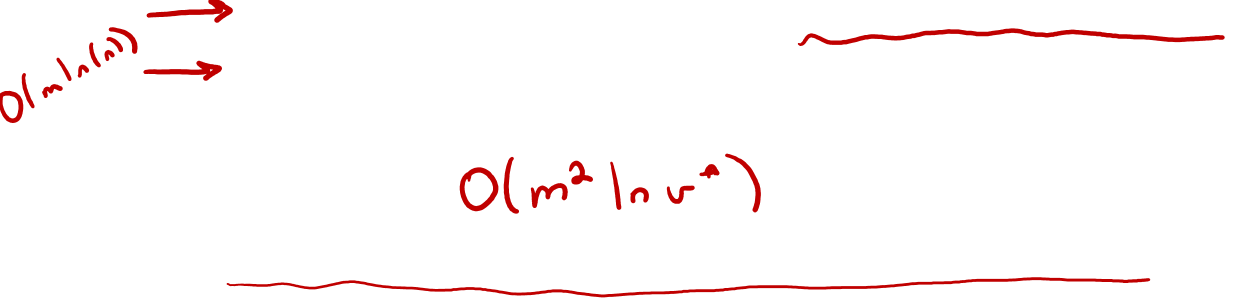 O(m ln(n))
O(m² ln v*)